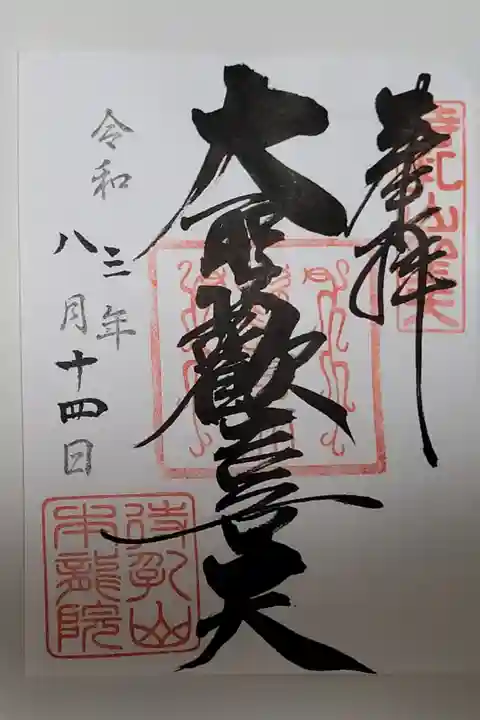 奉拝
大聖歓喜天
令和三年
八月十四日
待乳山
本龍院